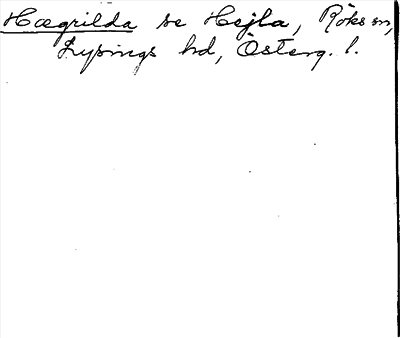 Hægrilda se Hejla, Röks sn,
Lysings hd, Österg. l.